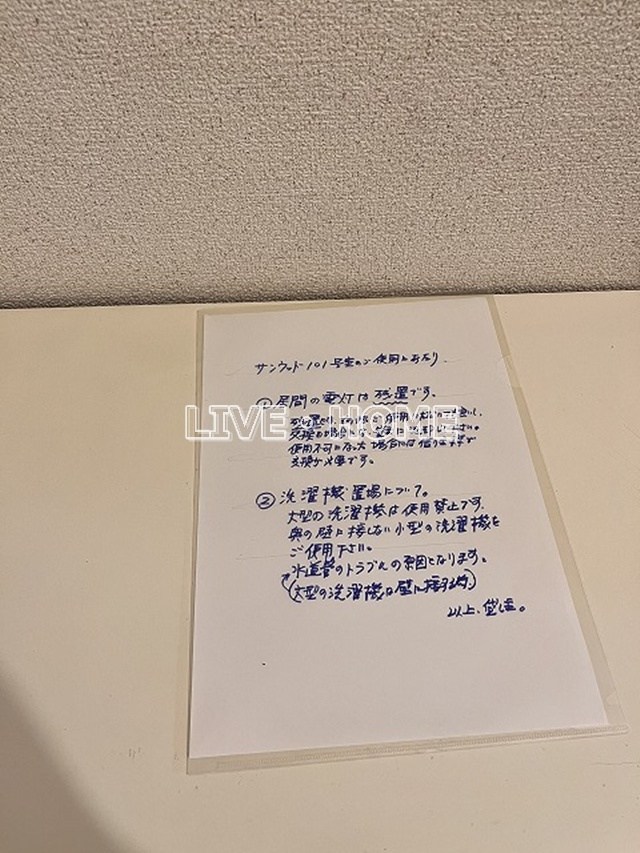 サンウッド101号室のご使用にあたり
① 居間の電灯は残置です。
使用不可になった場合には借り主様で
交換が必要です。
② 洗濯機置場について。
大型の洗濯機は使用禁止です。
奥の壁に接しない小型の洗濯機を
ご使用下さい。
水道管のトラブルの原因となります。
(大型の洗濯機は壁に接する時)
以上、貸主。
LIVE HOME